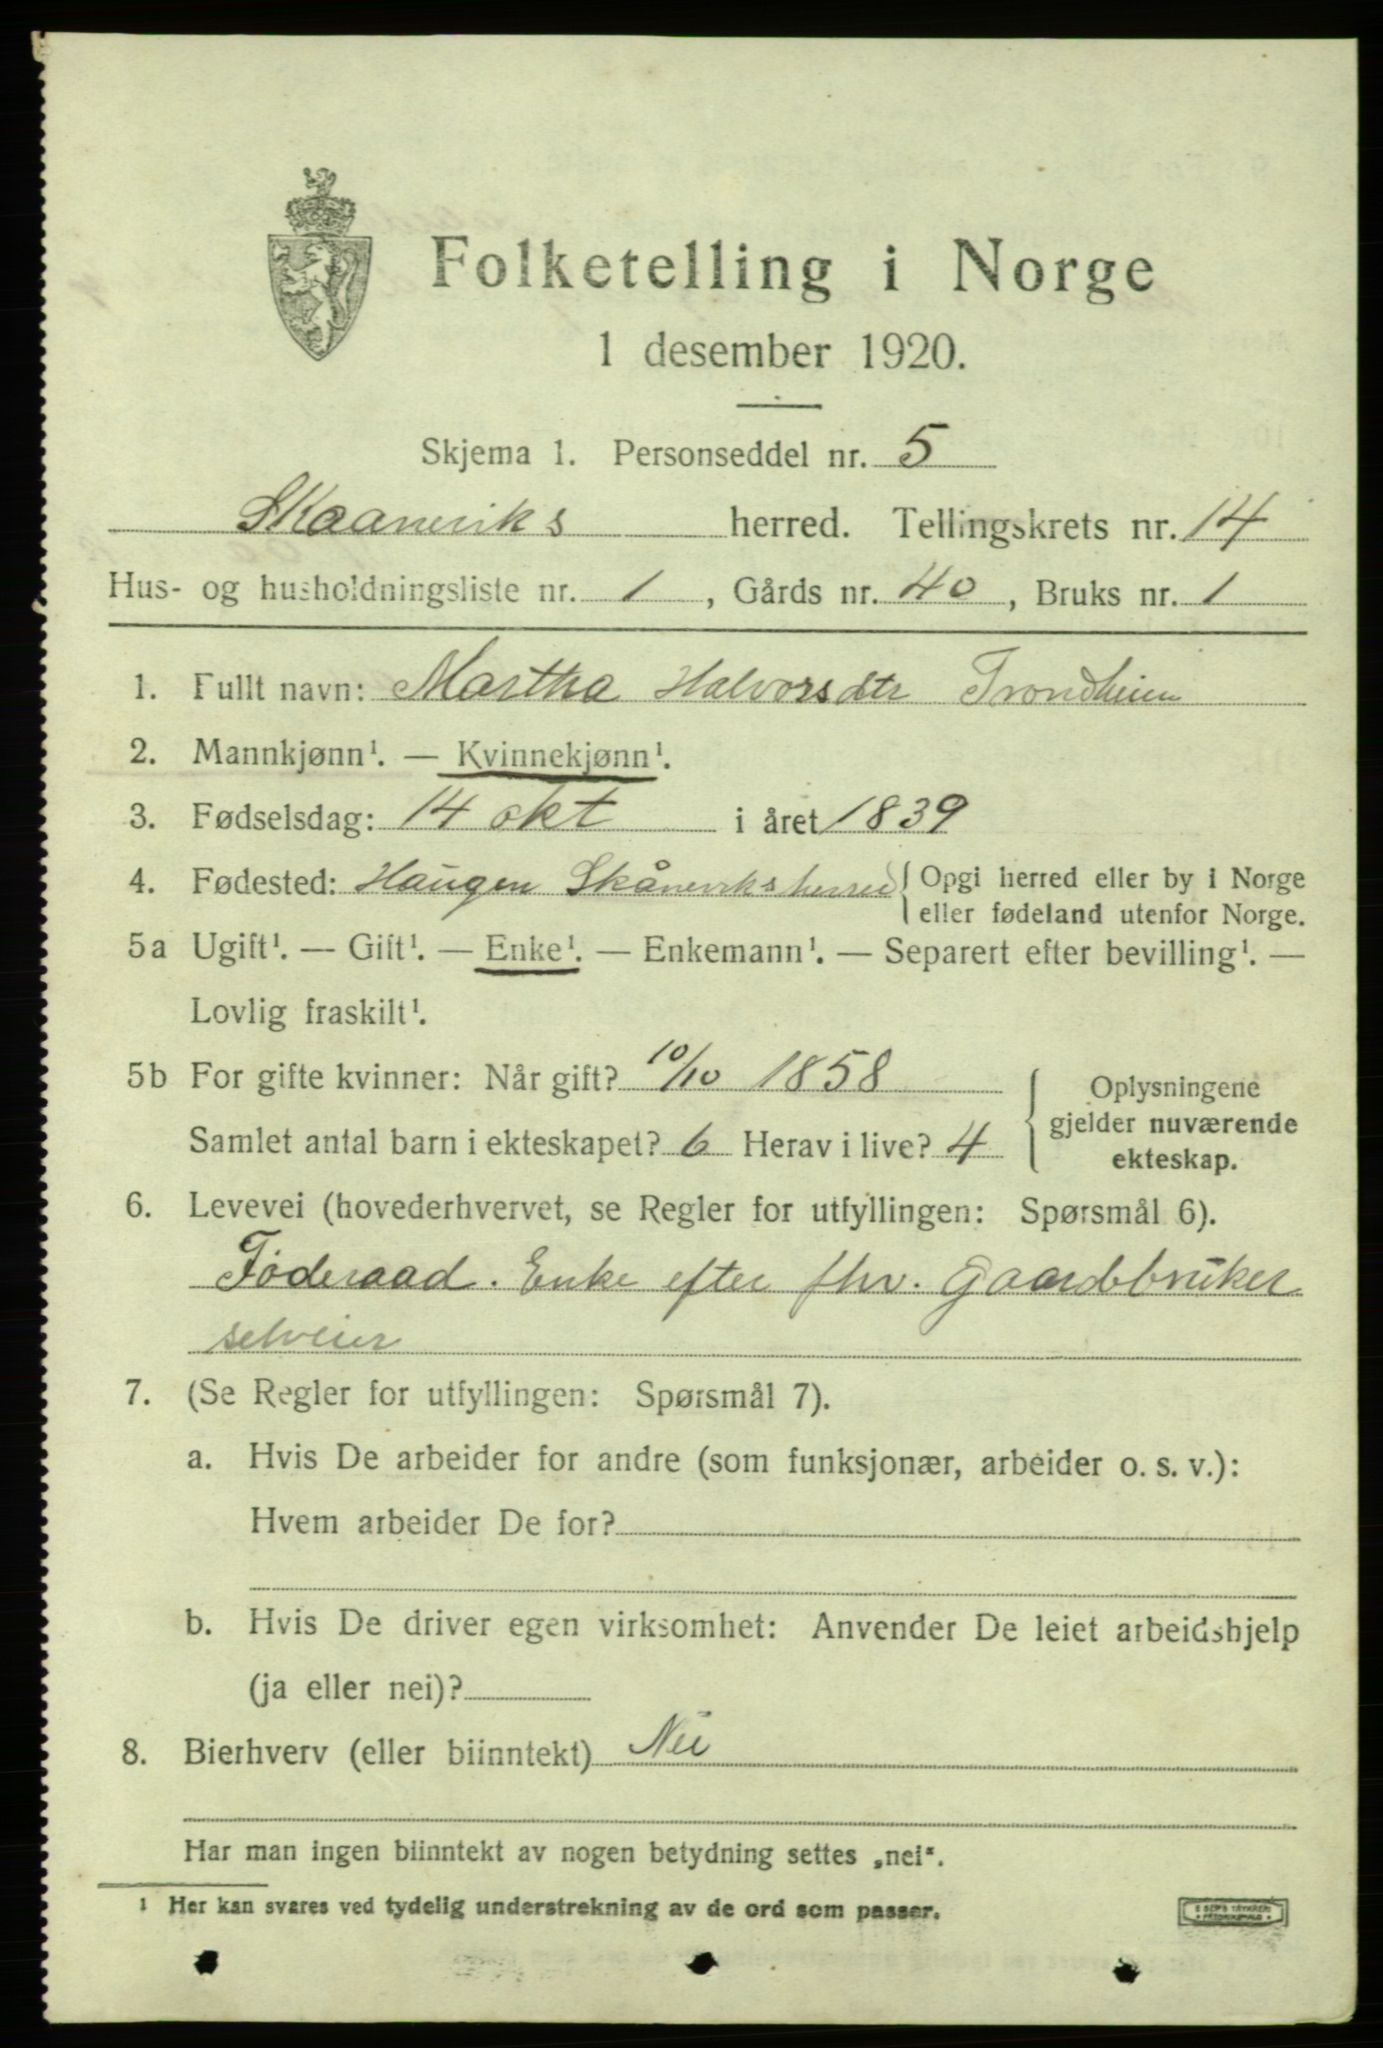 Folketelling i Norge
1 desember 1920.
Skjema 1. Personseddel nr. 5
Skaaneviks herred. Tellingskrets nr. 14
Hus- og husholdningsliste nr. 1, Gårds nr. 40, Bruks nr. 1
1. Fullt navn: Martha Halvorsdtr Trondheim
2. Mannkjønn¹. — Kvinnekjønn¹.
3. Fødselsdag: 14 okt i året 1839
4. Fødested: Haugen Skåneviks herred { Opgi herred eller by i Norge
eller fødeland utenfor Norge.
5a Ugift¹. — Gift¹. — Enke¹. — Enkemann¹. — Separert efter bevilling¹. —
Lovlig fraskilt¹.
5b For gifte kvinner: Når gift? 10/10 1858
Samlet antal barn i ekteskapet? 6 Herav i live? 4
Oplysningene
gjelder nuværende
ekteskap.
6. Levevei (hovederhvervet, se Regler for utfyllingen: Spørsmål 6).
Føderaad. Enke efter fhv. Gaardbruker
selveier
7. (Se Regler for utfyllingen: Spørsmål 7).
a. Hvis De arbeider for andre (som funksjonær, arbeider o. s. v.):
Hvem arbeider De for?
b. Hvis De driver egen virksomhet: Anvender De leiet arbeidshjelp
(ja eller nei)?
8. Bierhverv (eller biinntekt) Nei
Har man ingen biinntekt av nogen betydning settes „nei“.
¹ Her kan svares ved tydelig understrekning av de ord som passer.